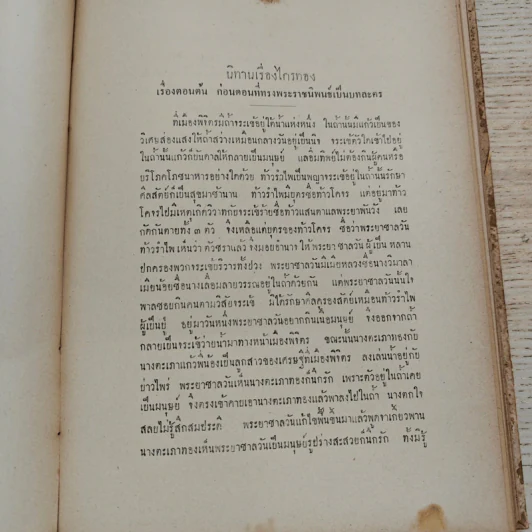 นิทานเรื่องไกรทอง
เรื่องตอนต้น ก่อนตอนที่ทรงพระราชนิพนธ์เป็นบทละคร
ที่เมืองพิจิตรมีถ้ำจรเข้อยู่ใต้น้ำแห่งหนึ่ง ในถ้ำนั้นมีแก้วเป็นของ
วิเศษส่องแสงให้ถ้ำสว่างเหมือนกลางวันอยู่เป็นนิจ จรเข้ตัวใดเข้าไปอยู่
ในถ้ำนั้นแก้วก็บันดาลให้กลายเป็นมนุษย์ และอิ่มทิพย์ไม่ต้องกินผู้คนหรือ
บริโภคโภชนาหารอย่างใดด้วย ท้าวรำไพเป็นพญาจรเข้อยู่ในถ้ำนั้นรักษา
ศิลสัตย์ก็เป็นสุขมาช้านาน ท้าวรำไพมีบุตรชื่อท้าวโคจร แต่อยู่มาท้าว
โคจรไปมีเหตุเกิดวิวาทกับจรเข้ร้ายชื่อท้าวแสนตาแลพระยาพันวัง เลย
กัดกันตายทั้ง ๓ ตัว จึงเหลือแต่บุตรของท้าวโคจร ชื่อว่าพระยาชาลวัน
ท้าวรำไพ เห็นว่า ตัวชราแล้ว จึงมอบอำนาจ ให้ พระยา ชาลวัน ผู้ เป็น หลาน
ปกครองพวกจรเข้บริวารทั้งปวง พระยาชาลวันมีเมียหลวงชื่อนางวิมาลา
เมียน้อยชื่อนางเลื่อมลายวรรณอยู่ในถ้ำด้วยกัน แต่พระยาชาลวันนั้นใจ
พาลชอบกินคนตามวิสัยจรเข้ มิได้รักษาศิลครองสัตย์เหมือนท้าวรำไพ
ผู้เป็นปู่ อยู่มาวันหนึ่งพระยาชาลวันอยากกินเนื้อมนุษย์ จึงออกจากถ้ำ
กลายเป็นจรเข้ว่ายน้ำมาทางหน้าเมืองพิจิตร ขณะนั้นนางตะเภาทองกับ
นางตะเภาแก้วพี่น้องเป็นลูกสาวของเศรษฐีที่เมืองพิจิตร ลงเล่นน้ำอยู่กับ
บ่าวไพร่ พระยาชาลวันเห็นนางตะเภาทองก็นึกรัก เพราะตัวอยู่ในถ้ำเคย
เป็นมนุษย์ จึงตรงเข้าคาบเอานางตะเภาทองแล้วพาลงไปในถ้ำ นางตกใจ
สลบไม่รู้สึกสมประดี พระยาชาลวันแก้ไขฟื้นขึ้นมาแล้วพูดจาเกี้ยวพาน
นางตะเภาทองเห็นพระยาชาลวันเป็นมนุษย์รูปร่างสะสวยก็นึกรัก ทั้งมิรู้